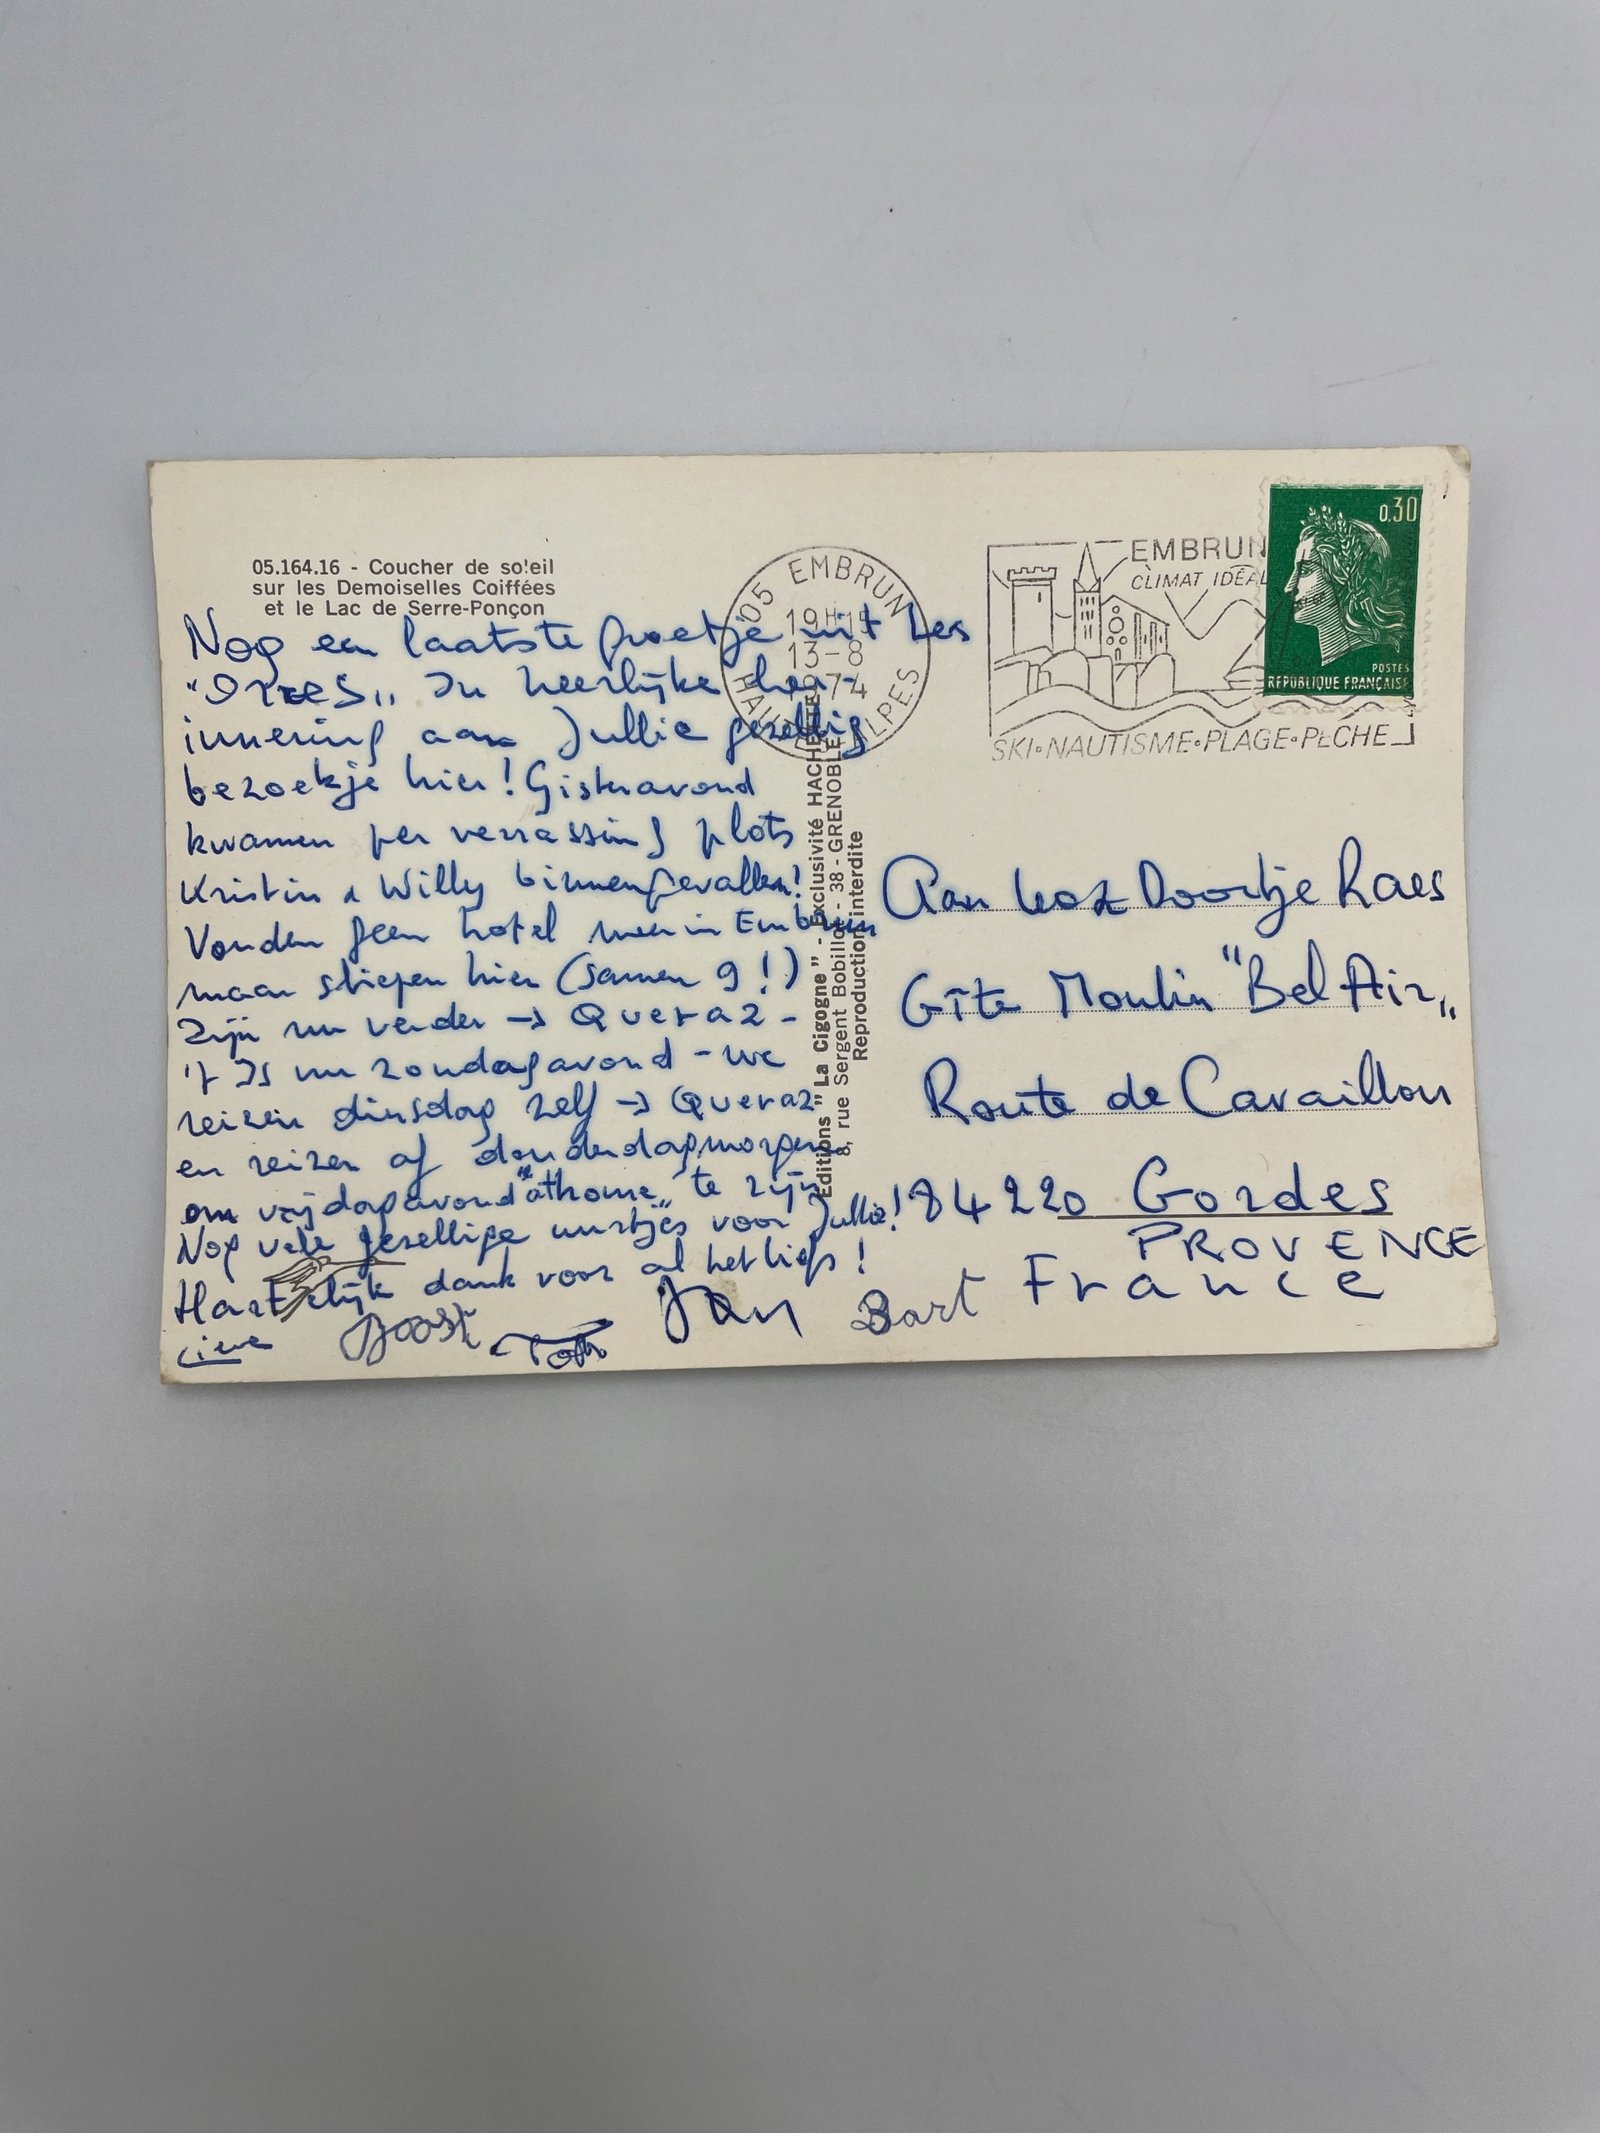 05.164.16 - Coucher de soleil
sur les Demoiselles Coiffées
et le Lac de Serre-Ponçon
Nog een laatste groetje uit Les
"ORRES„ In heerlijke her-
innering aan Jullie gezellig
bezoekje hier! Gisteravond
kwamen per verrassing plots
Kristin & Willy binnengevallen!
Vonden geen hotel meer in Embrun
maar sliepen hier (samen 9!)
Zijn nu verder → Queraz -
't Is nu zondagavond - we
reizen dinsdag zelf → Queraz
en reizen af donderdagmorgen
om vrijdagavond "at home„ te zijn
Nog vele gezellige uurtjes voor Jullie!
Hartelijk dank voor al het liefs!
Joost Tom Jan Bart
05 EMBRUN
19H15
13-8
1974
HAUTES ALPES
EMBRUN
CLIMAT IDÉAL
SKI•NAUTISME•PLAGE•PÊCHE
0,30
POSTES
REPUBLIQUE FRANÇAISE
Editions "La Cigogne" - Exclusivité HACHETTE
8, rue Sergent Bobillot - 38 - GRENOBLE
Reproduction interdite
Aan Doortje Raes
Gîte Moulin "Bel Air„
Route de Cavaillon
84220 Gordes
PROVENCE
France